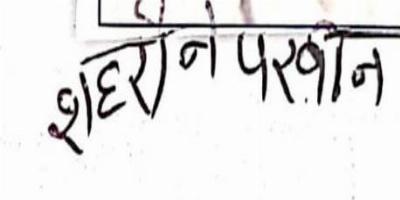 शहरीन परवीन